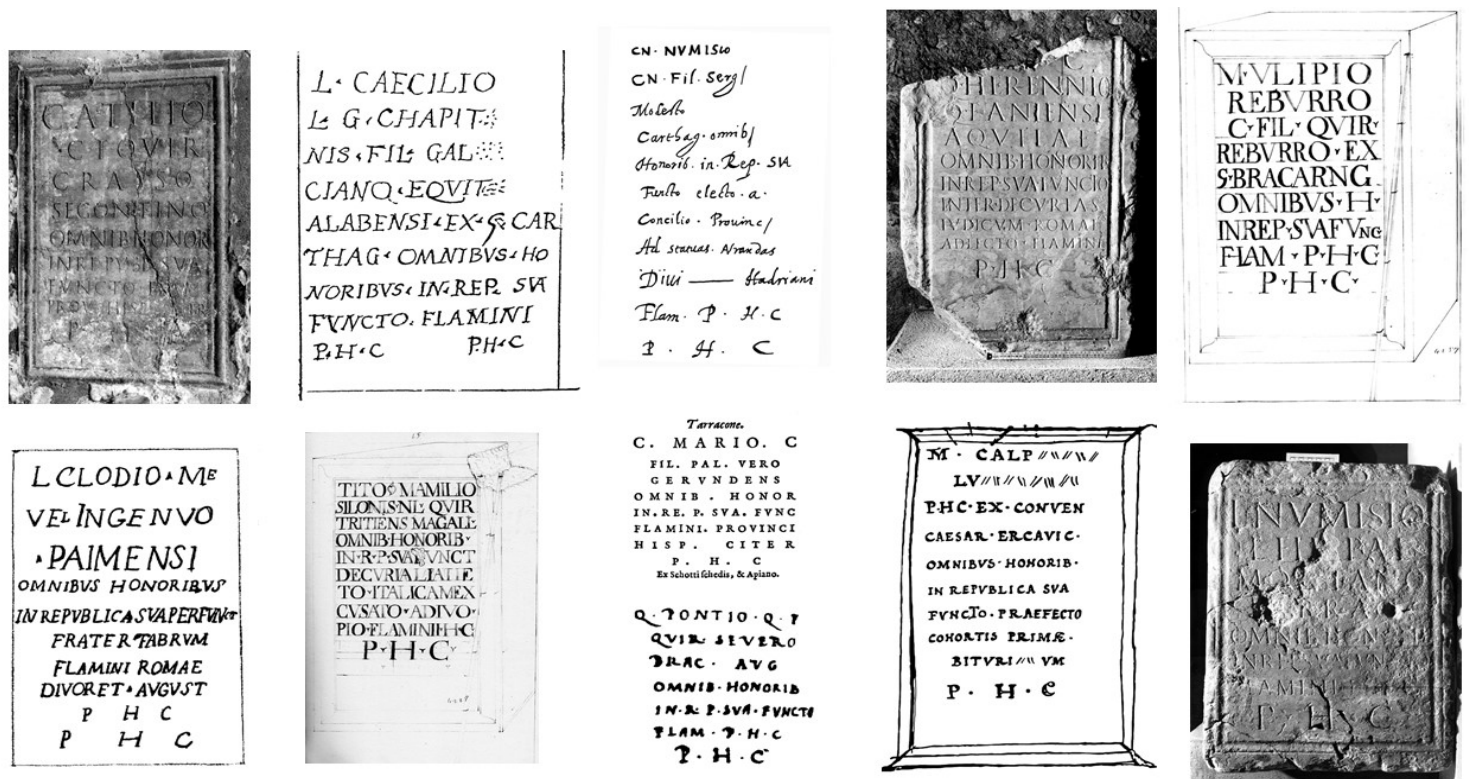 CATILIO
CRASSO
SEGONTINO
OMNIB HONOR
IN REP SVA
L· CAECILIO
L· G· CHAPIT
NIS· FIL GAL
CIANO· EQVIT
ALABENSI· EX· CAR
THAG· OMNIBVS· HO
NORIBVS· IN· REP. SVA
FVNCTO. FLAMINI
P.H·C P.H·C
CN· NVMISIO
CN· Fil. Sergl
Modesto
Carthag. omnibl
Honorib. in. Rep. SVA
Functo electo. a.
Concilio. Provinc/
Ad statuas. Aurandas
Divi — Hadriani
Flam. P. H. C
P. H. C
C
Q·HERENNIO
Q·F·ANIENSI
AQVILAE
OMNIB·HONORIB
IN REP SVA FVNCTO
INTER·DECVRIAS
IVDICVM·ROMAE
ADLECTO·FLAMINI
P·H·C
M·VLIPIO
REBVRRO
C·FIL·QVIR·
REBVRRO·EX
S·BRACARNG
OMNIBVS·H·
IN REP·SVA FVNG
FLAM·P·H·C
P·H·C·
L CLODIO· ME
VEL INGENVO
· PAIMENSI
OMNIBVS HONORIBVS
IN REPVBLICA SVA PERFVNCT
FRATER FABRVM
FLAMINI ROMAE
DIVORET· AVGVST
P H C
P H C
TITO MAMILIO
SILONIS·NL· QVIR
TRITIENS MAGALL
OMNIB·HONORIB·
IN·R·P·SVA FVNCT
DECVRIALIATIE
TO·ITALICAM EX
CVSATO·ADIVO·
PIO·FLAMINI H·C
P·H·C·
Tarracone.
C. MARIO. C
FIL. PAL. VERO
GERVNDENS
OMNIB. HONOR
IN. RE. P. SVA. FVNC
FLAMINI. PROVINCI
HISP. CITER
P. H. C
Ex Schotti schedis, & Apiano.
Q·PONTIO·Q·F
QVIR· SEVERO
BRAC· AVG
OMNIB·HONORIB
IN·R·P·SVA·FVNCTO
FLAM·P·H·C
P·H·C
M· CALP
LV
P·H·C·EX·CONVEN
CAESAR·ERCAVIC·
OMNIBVS·HONORIB·
IN REPVBLICA SVA
FVNCTO·PRAEFECTO
COHORTIS PRIMÆ·
BITVRI VM
P· H· C
L NVMISIO
L FIL PAL
MONTANO
OMNIB HONORIB
IN REP SVA FVNC
FLAMINI
P·H·C